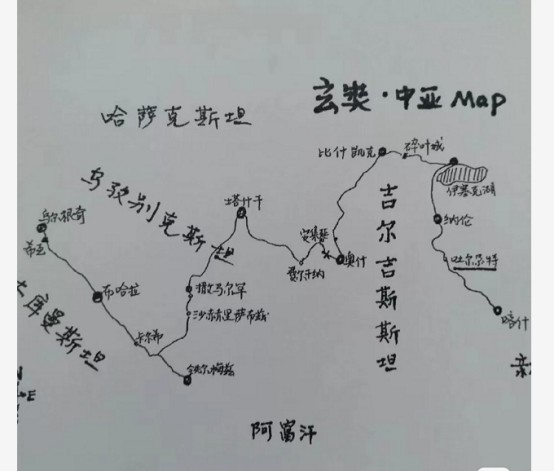 玄奘·中亚 Map
哈萨克斯坦
比什凯克
碎叶城
伊塞克湖
乌兹别克斯坦
塔什干
安集延
费尔干纳
奥什
吉尔吉斯斯坦
纳伦
吐尔尕特
喀什
乌尔根奇
希瓦
布哈拉
撒马尔罕
沙赫里萨布兹
卡尔希
铁尔梅兹
土库曼斯坦
阿富汗